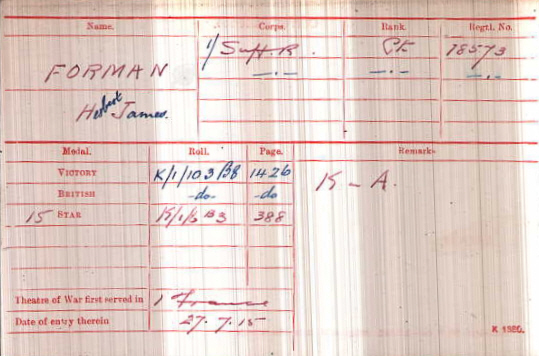 Name. Corps. Rank. Regtl. No.
1/ Suff. R. Pte 18573
FORMAN -.- -.- -.-
Herbert James.
Medal. Roll. Page. Remarks.
VICTORY K/1/103 B8 1426 K - A.
BRITISH -do- -do-
15 STAR K/1/3 B3 388
Theatre of War first served in 1 France
Date of entry therein 27.7.15
K 1380.